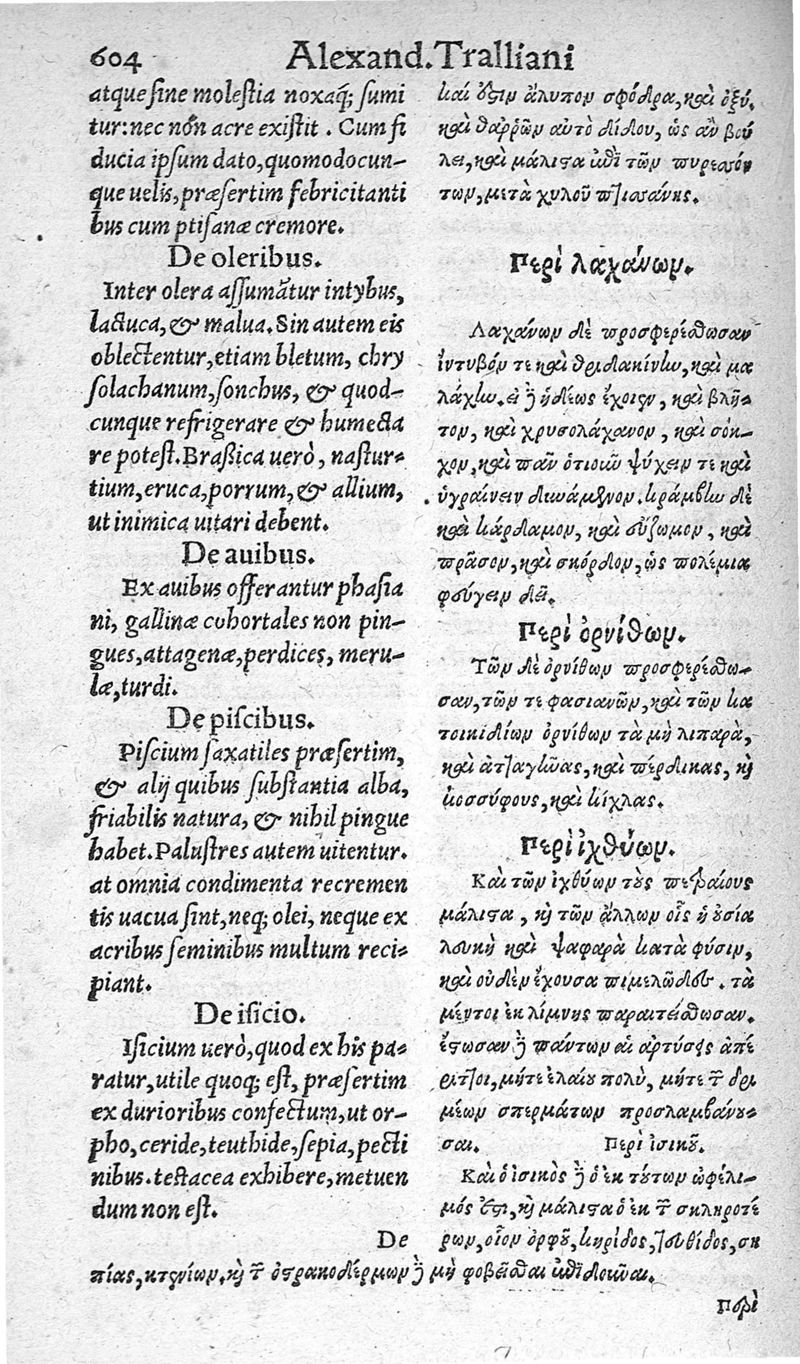 604 Alexand. Tralliani
atque sine molestia noxaq́; sumi
tur: nec non acre existit. Cum fi
ducia ipsum dato, quomodocun-
que uelis, præsertim febricitanti
bus cum ptisanæ cremore.
De oleribus.
Inter olera assumãtur intybus,
lactuca, & malua. Sin autem eis
oblectentur, etiam bletum, chry
solachanum, sonchus, & quod-
cunque refrigerare & humecta
re potest. Brassica uerò, nastur-
tium, eruca, porrum, & allium,
ut inimica uitari debent.
De avibus.
Ex auibus offerantur phasia
ni, gallinæ cohortales non pin-
gues, attagenæ, perdices, meru-
læ, turdi.
De piscibus.
Piscium saxatiles præsertim,
& alij quibus substantia alba,
friabilis natura, & nihil pingue
habet. Palustres autem uitentur.
at omnia condimenta recremen
tis uacua sint, neq; olei, neque ex
acribus seminibus multum reci-
piant.
De isicio.
Isicium uerò, quod ex his pa-
ratur, utile quoq; est, præsertim
ex durioribus confectum, ut or-
pho, ceride, teuthide, sepia, pecti
nibus. testacea exhibere, metuen
dum non est.
De
καί ὅστιν ἄλυπον σφόδρα, καὶ ὀξύ.
καὶ θαῤῥῶν αὐτὸ δίδου, ὡς ἂν βού
λει, καὶ μάλιστα ἐπὶ τῶν πυρεσσόν
των, μετὰ χυλοῦ πτισσάνης.
Περὶ λαχάνων.
Λαχάνων δὲ προσφερέσθωσαν
ἰντυβόν τε καὶ θριδακίνην, καὶ μα
λάχην. εἰ δὲ ἡδέως ἔχοιεν, καὶ βλῆ-
τον, καὶ χρυσολάχανον, καὶ σόκ-
χον, καὶ πᾶν ὁτιοῦν ψύχειν τε καὶ
ὑγραίνειν δυνάμενον. κράμβην δὲ
καὶ κάρδαμον, καὶ εὔζωμον, καὶ
πρᾶσον, καὶ σκόρδον, ὡς πολέμια
φεύγειν δεῖ.
Περὶ ὀρνίθων.
Τῶν δὲ ὀρνίθων προσφερέσθω-
σαν, τῶν τε φασιανῶν, καὶ τῶν κα
τοικιδίων ὀρνίθων τὰ μὴ λιπαρὰ,
καὶ ἀτταγῆνας, καὶ πέρδικας, καὶ
κοσσύφους, καὶ κίχλας.
Περὶ ἰχθύων.
Καὶ τῶν ἰχθύων τοὺς πετραίους
μάλιστα, καὶ τῶν ἄλλων οἷς ἡ οὐσία
λευκὴ καὶ ψαφαρὰ κατὰ φύσιν,
καὶ οὐδὲν ἔχουσα πιμελῶδες. τὰ
μέντοι ἐκ λίμνης παραιτείσθωσαν.
ἔστωσαν δὲ πάντων αἱ ἀρτύσεις ἀπέ
ριττοι, μήτε ἐλαίου πολὺ, μήτε τῶν δρι
μέων σπερμάτων προσλαμβάνου-
σαι. Περὶ ἰσικοῦ.
Καὶ ὁ ἰσικὸς δὲ ὁ ἐκ τούτων ὠφέλι-
μός ἐστι, καὶ μάλιστα ὁ ἐκ τῶν σκληροτέ
ρων, οἷον ὀρφοῦ, κηρίδος, τευθίδος, ση
πίας, κτενίων. καὶ τῶν ὀστρακοδέρμων δὲ μὴ φοβεῖσθαι ἐπιδιδόναι.
Περὶ